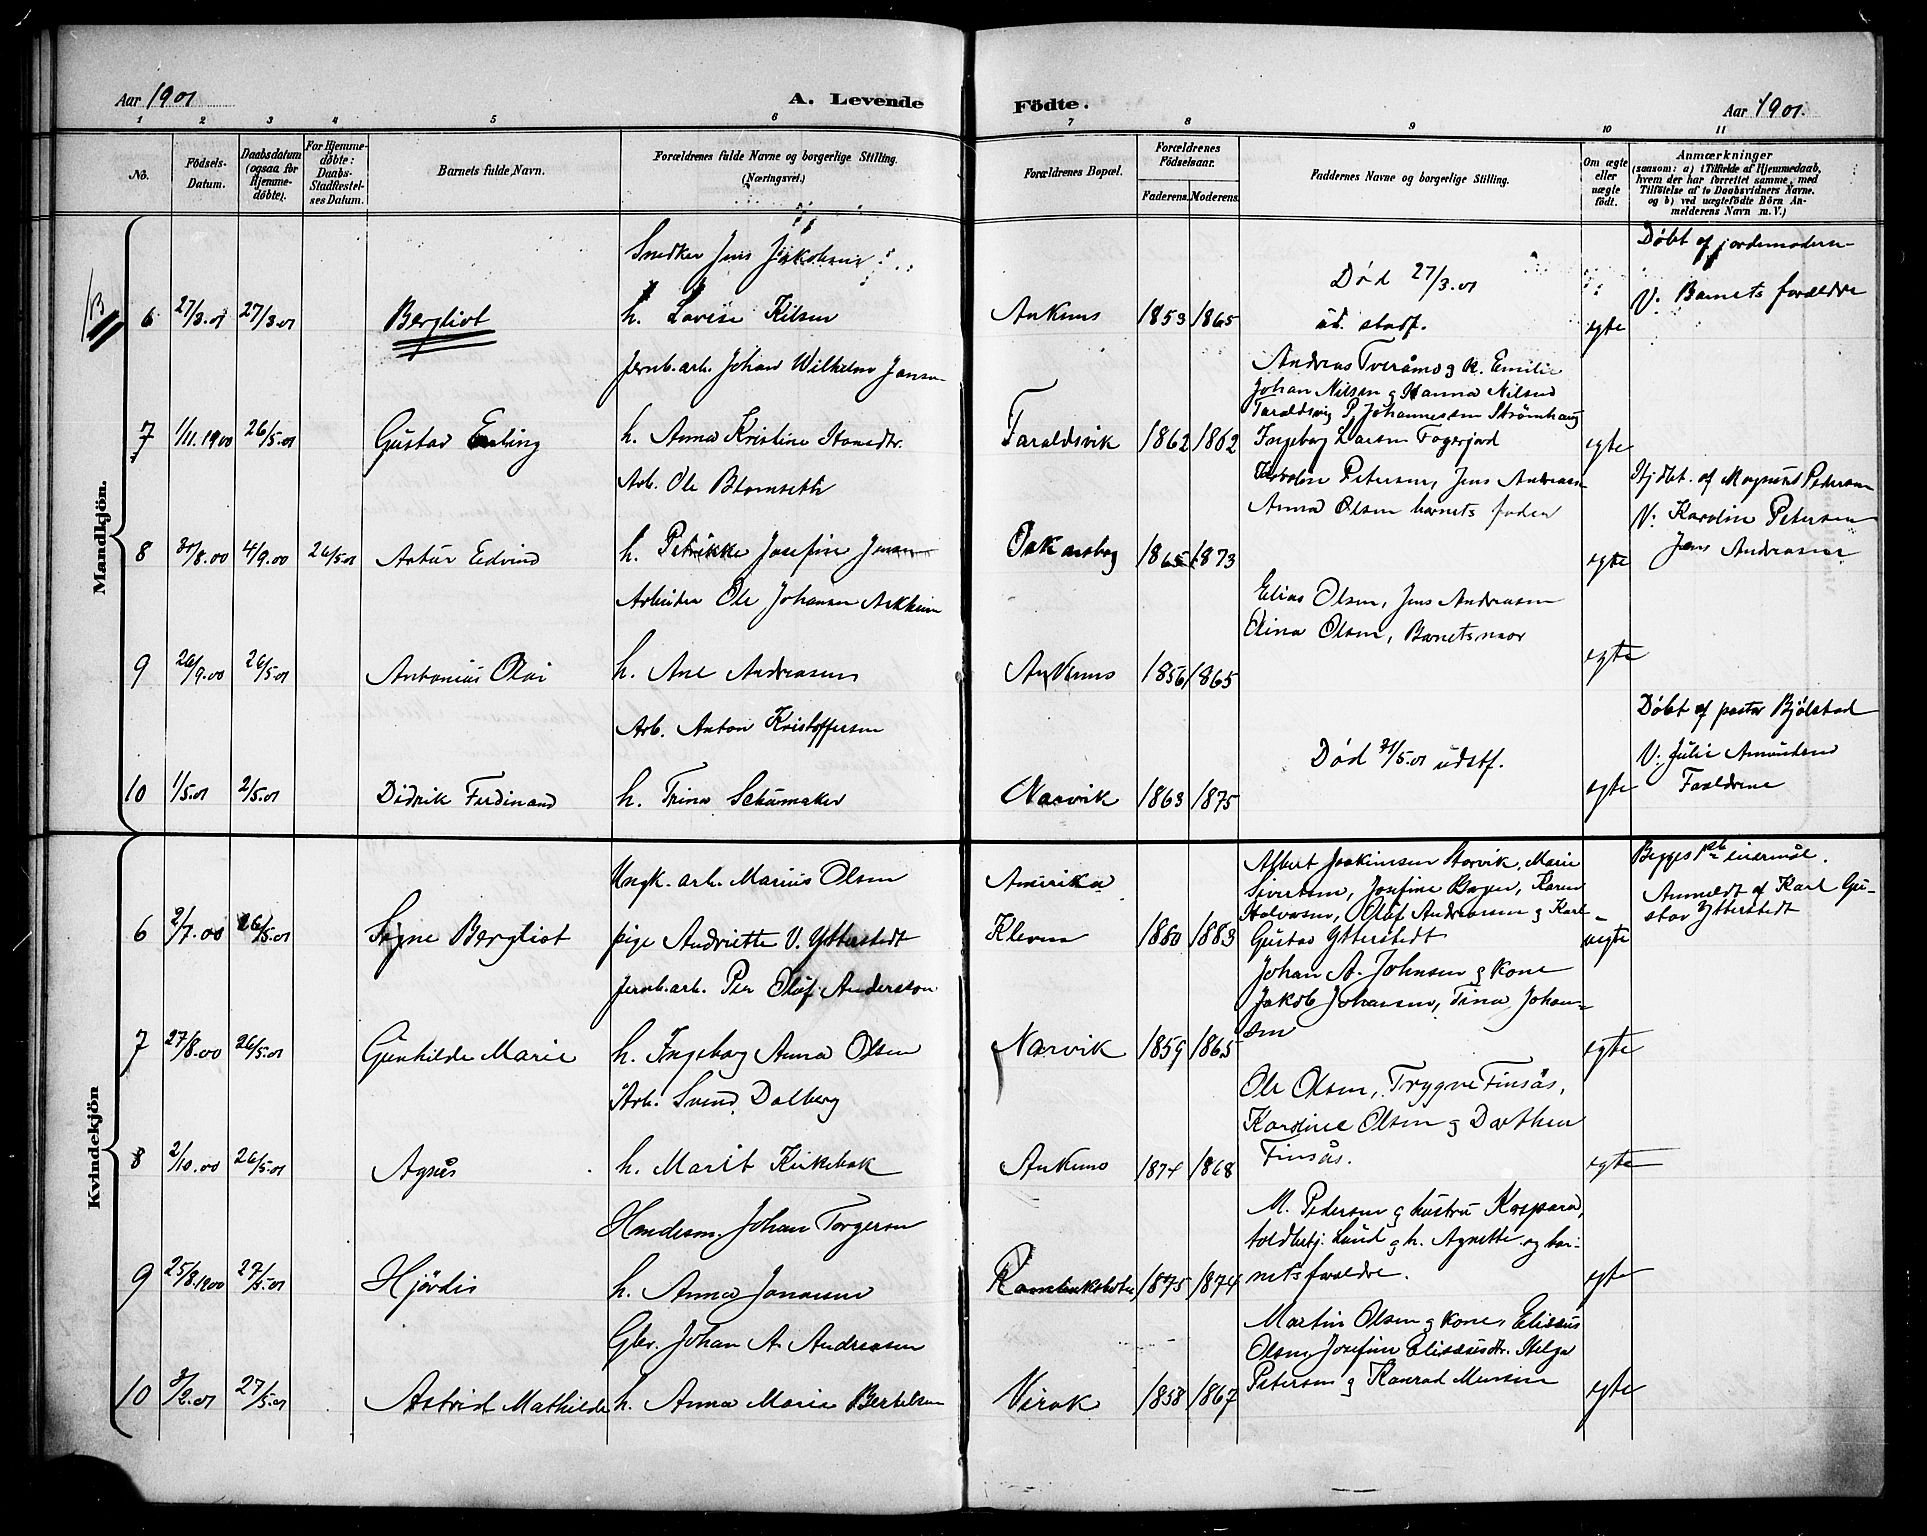 Aar 1901
A. Levende
Födte.
Aar 1901.
1 2 3 4 5 6 7 8 9 10 11
No.
Födsels-Datum.
Daabsdatum (ogsaa for Hjemme-døbte).
For Hjemme-døbte: Daabs-Stadfestel-ses Datum.
Barnets fulde Navn.
Forældrenes fulde Navne og borgerlige Stilling.
(Næringsvei.)
Forældrenes Bopæl.
Forældrenes Födselsaar.
Faderens. Moderens.
Faddernes Navne og borgerlige Stilling.
Om ægte eller uægte födt.
Anmærkninger
(saasom: a) i Tilfælde af Hjemmedaab,
hvem der har forrettet samme, med
Tilföielse af to Daabsvidners Navne.
og b) ved uægtefödte Börn An-
melderens Navn m. V.)
Mandkjön.
Snedker Jens Jakobsen
Døbt af jordemoderen
Død 27/3.01
V: Barnets forældre
6 27/3.01 27/3.01 Bergliot h. Lovise Kilsen Ankenes 1853 1865 ud. stadf. egte
Jernb.arb. Johan Wilhelm Jansen
Andreas Tveråmo g k. Emilie
Johan Nilsen g Hanna Nilsen
Taraldsvig P. Johannessen Strømhaug
7 1/11.1900 26/5.01 Gustav Erling h. Anna Kristine Taraldsvik 1862 1862 Ingeborg Larsen Fagerjord egte
Arb. Ole Blomseth
Petersen, Jens Andreassen
Anna Olsen barnets fader
Hjdbt. af Magnus Pedersen
V: Karoline Petersen
Jens Andreassen
8 30/8.00 4/9.00 26/5.01 Artur Edvind h. Petrikke Josefine Jensen Oskarsborg 1865 1873 egte
Arbeider Ole Johansen
Elias Olsen, Jens Andreasen
Elina Olsen, Barnets moor
9 26/9.00 26/5.01 Antonius Olai h. Ane Andreasen Ankenes 1856 1865 egte
Arb. Anton Kristoffersen
Død 21/5.01 udstf.
Døbt af pastor Bjølstad
V: Julie Amundsen
Forældrene
10 1/5.01 2/5.01 Didrik Ferdinand h. Trina Schumaker Narvik 1863 1875 egte
Kvindekjön
Ungk. arb. Marius Olsen
Amerika
Albert Joakimsen Storvik, Marie
Sivertsen, Josefine Bagen, Karen
Halvorsen, Olaf Andreassen g Karl
Begges 1ste leiermål.
Anmeldt af Karl Gu-
stav Ytterstedt
6 2/7.00 26/5.01 Signe Bergliot pige Andriette V. Ytterstedt Kleven 1880 1883 Gustav Ytterstedt uegte
Jernb.arb. Per Olof Andersson
Johan A. Johnsen g kone
Jakob Johansen, Tina Johan-
sen
7 27/8.00 26/5.01 Gunhilde Marie h. Ingeborg Anna Olsen Narvik 1859 1865 egte
Arb. Svend Dalberg
Ole Olsen, Trygve Finsås,
Karoline Olsen g Dorthea
Finsås.
8 2/10.00 26/5.01 Agnes h. Marit Kirkebak Ankenes 1874 1868 egte
Handelsm. Johan Torgersen
M. Pedersen g hustru Kaspara,
toldbetj. Lund g h. Agnette og bar-
nets forældre.
9 25/8.1900 27/5.01 Hjördis h. Anna Jonassen 1875 1874 egte
Gbr. Johan A. Andreassen
Martin Olsen g kone, Eliseus
Olsen, Josefine Eliseusdtr. Helga
Petersen g Konrad
10 8/2.01 27/5.01 Astrid Mathilde h. Anna Marie Bertelsen Virak 1858 1867 egte